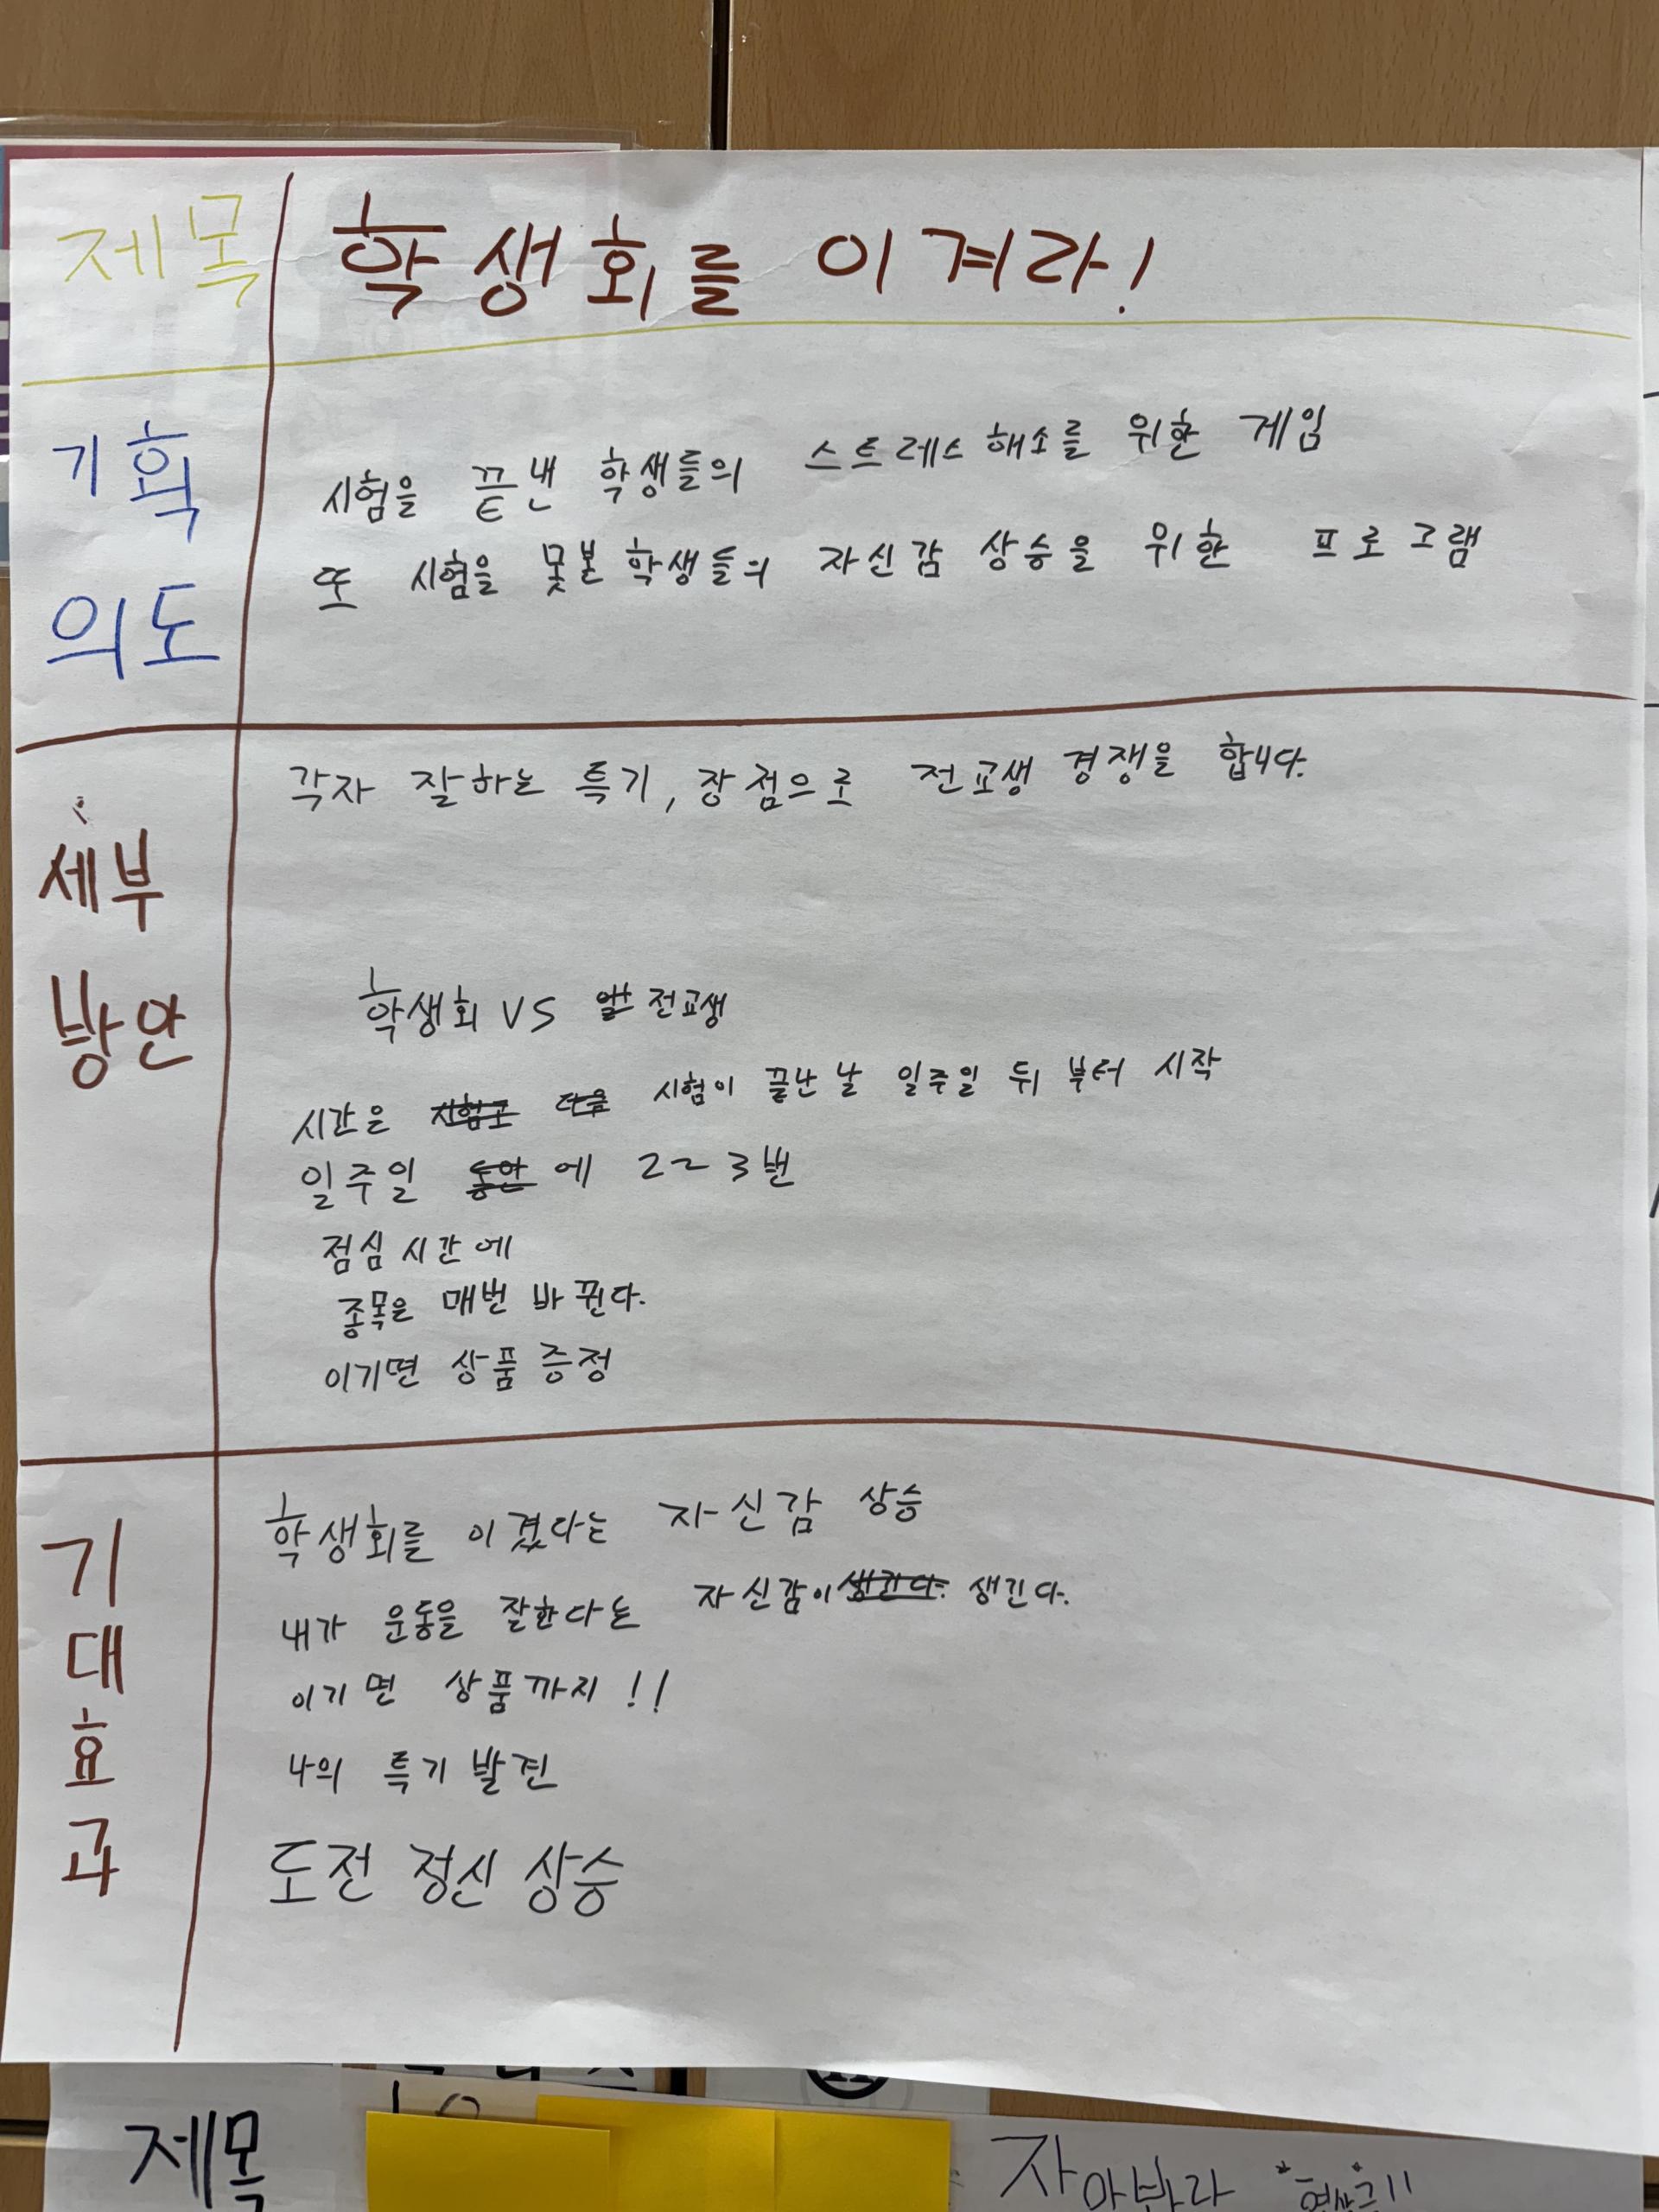 제목
학생회를 이겨라!
기획
의도
시험을 끝낸 학생들의 스트레스 해소를 위한 게임
또 시험을 못본 학생들의 자신감 상승을 위한 프로그램
세부
방안
각자 잘하는 특기, 장점으로 전교생 경쟁을 합니다.
학생회 VS 전교생
시간은 시험이 끝난 날 일주일 뒤 부터 시작
일주일 동안 에 2~3번
점심 시간에
종목은 매번 바뀐다.
이기면 상품 증정
기
대
효
과
학생회를 이겼다는 자신감 상승
내가 운동을 잘한다는 자신감이 생긴다. 생긴다.
이기면 상품까지 !!
나의 특기 발견
도전 정신 상승
제목
자아바라